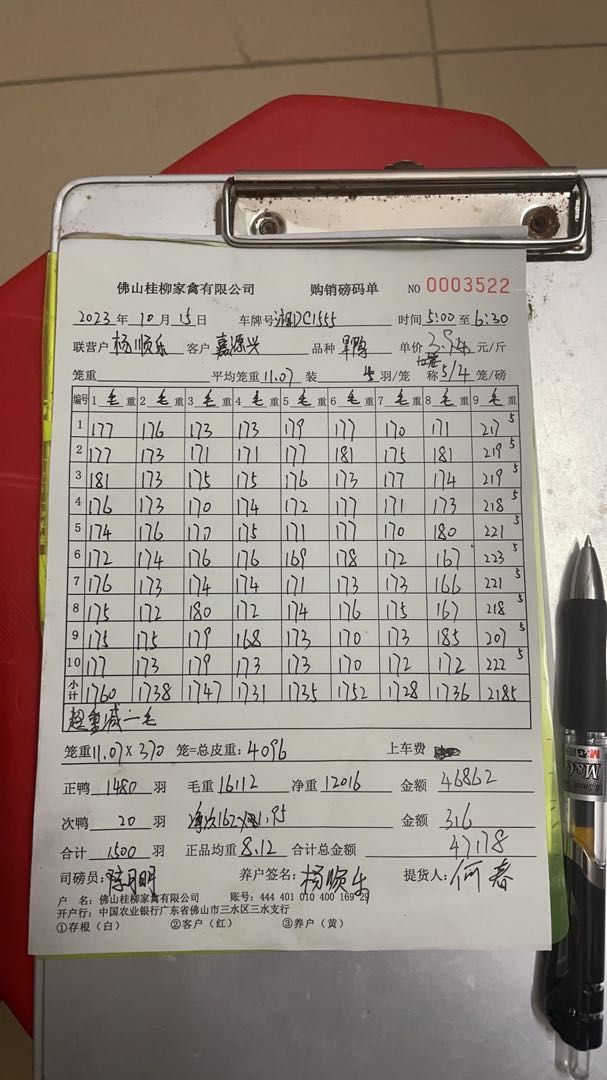 佛山桂柳家禽有限公司 购销磅码单 NO 0003522
2023 年 10 月 15 日 车牌号 湘DC1555 时间 5:00 至 6:30
联营户 杨顺乐 客户 嘉源兴 品种 旱鸭 单价 元/斤
笼重 平均笼重 11.07 装 羽/笼 称 5/4 笼/磅
编号 1 毛 重 2 毛 重 3 毛 重 4 毛 重 5 毛 重 6 毛 重 7 毛 重 8 毛 重 9 毛 重
1 177 176 173 173 179 177 170 171 217 5
2 177 173 171 171 177 181 175 181 219 5
3 181 173 175 175 176 173 177 174 219 5
4 176 173 170 174 172 177 171 173 218 5
5 174 176 177 175 171 177 170 180 221 5
6 172 174 176 176 169 178 172 167 223 5
7 176 173 174 174 171 173 173 166 221 5
8 175 172 180 172 174 176 175 167 218 5
9 175 175 179 168 173 170 173 185 207 5
10 177 173 179 173 173 170 172 172 222 5
小计 1760 1738 1747 1731 1735 1752 1728 1736 2185
超重减一毛
笼重 11.07 × 370 笼=总皮重: 4096 上车费
正鸭 1480 羽 毛重 16112 净重 12016 金额 46862
次鸭 20 羽 162 1.95 金额 316
合计 1500 羽 正品均重 8.12 合计总金额 47178
司磅员: 养户签名: 杨顺乐 提货人: 何春
户 名: 佛山桂柳家禽有限公司 账号: 444 401 010 400 169 29
开户行: 中国农业银行广东省佛山市三水区三水支行
①存根(白) ②客户(红) ③养户(黄)
M&G